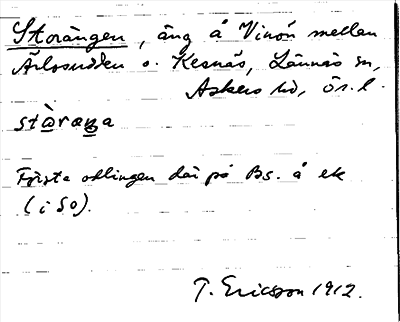 Storängen, äng å Vinön mellan
Ärlosudden o. Kesnäs, Lännäs sn,
Askers hd, Ör. l.
stàraŋa
Första odlingen där på Bs. å ek
(i So).
T. Ericsson 1912.